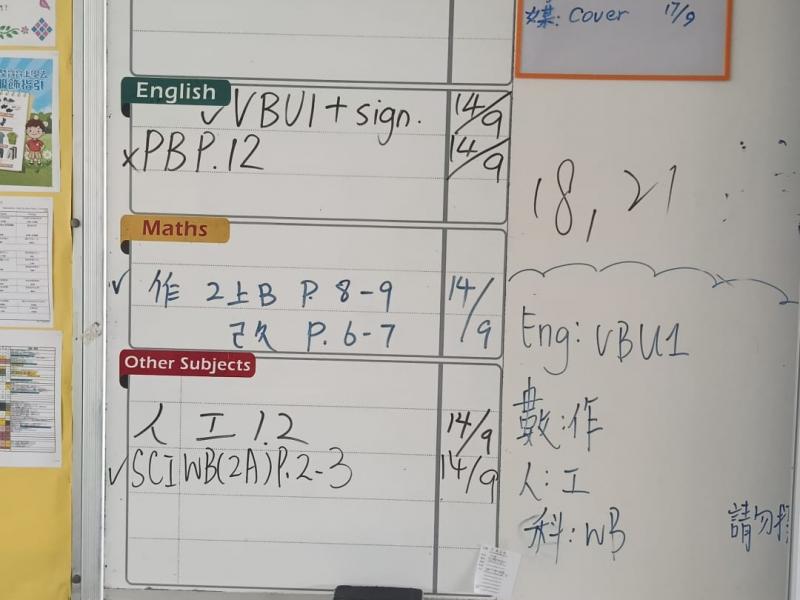 媒: Cover 17/9
服飾指引
English
✓VBU1 + sign. 14/9
×PB P.12 14/9
18, 21
Maths
✓ 作 2上B P. 8-9 14/9
改 P. 6-7
Eng: VBU1
Other Subjects
數: 作
人 工 1.2 14/9
✓SCI WB(2A) P.2-3 14/9
人: 工
科: WB
請勿擦